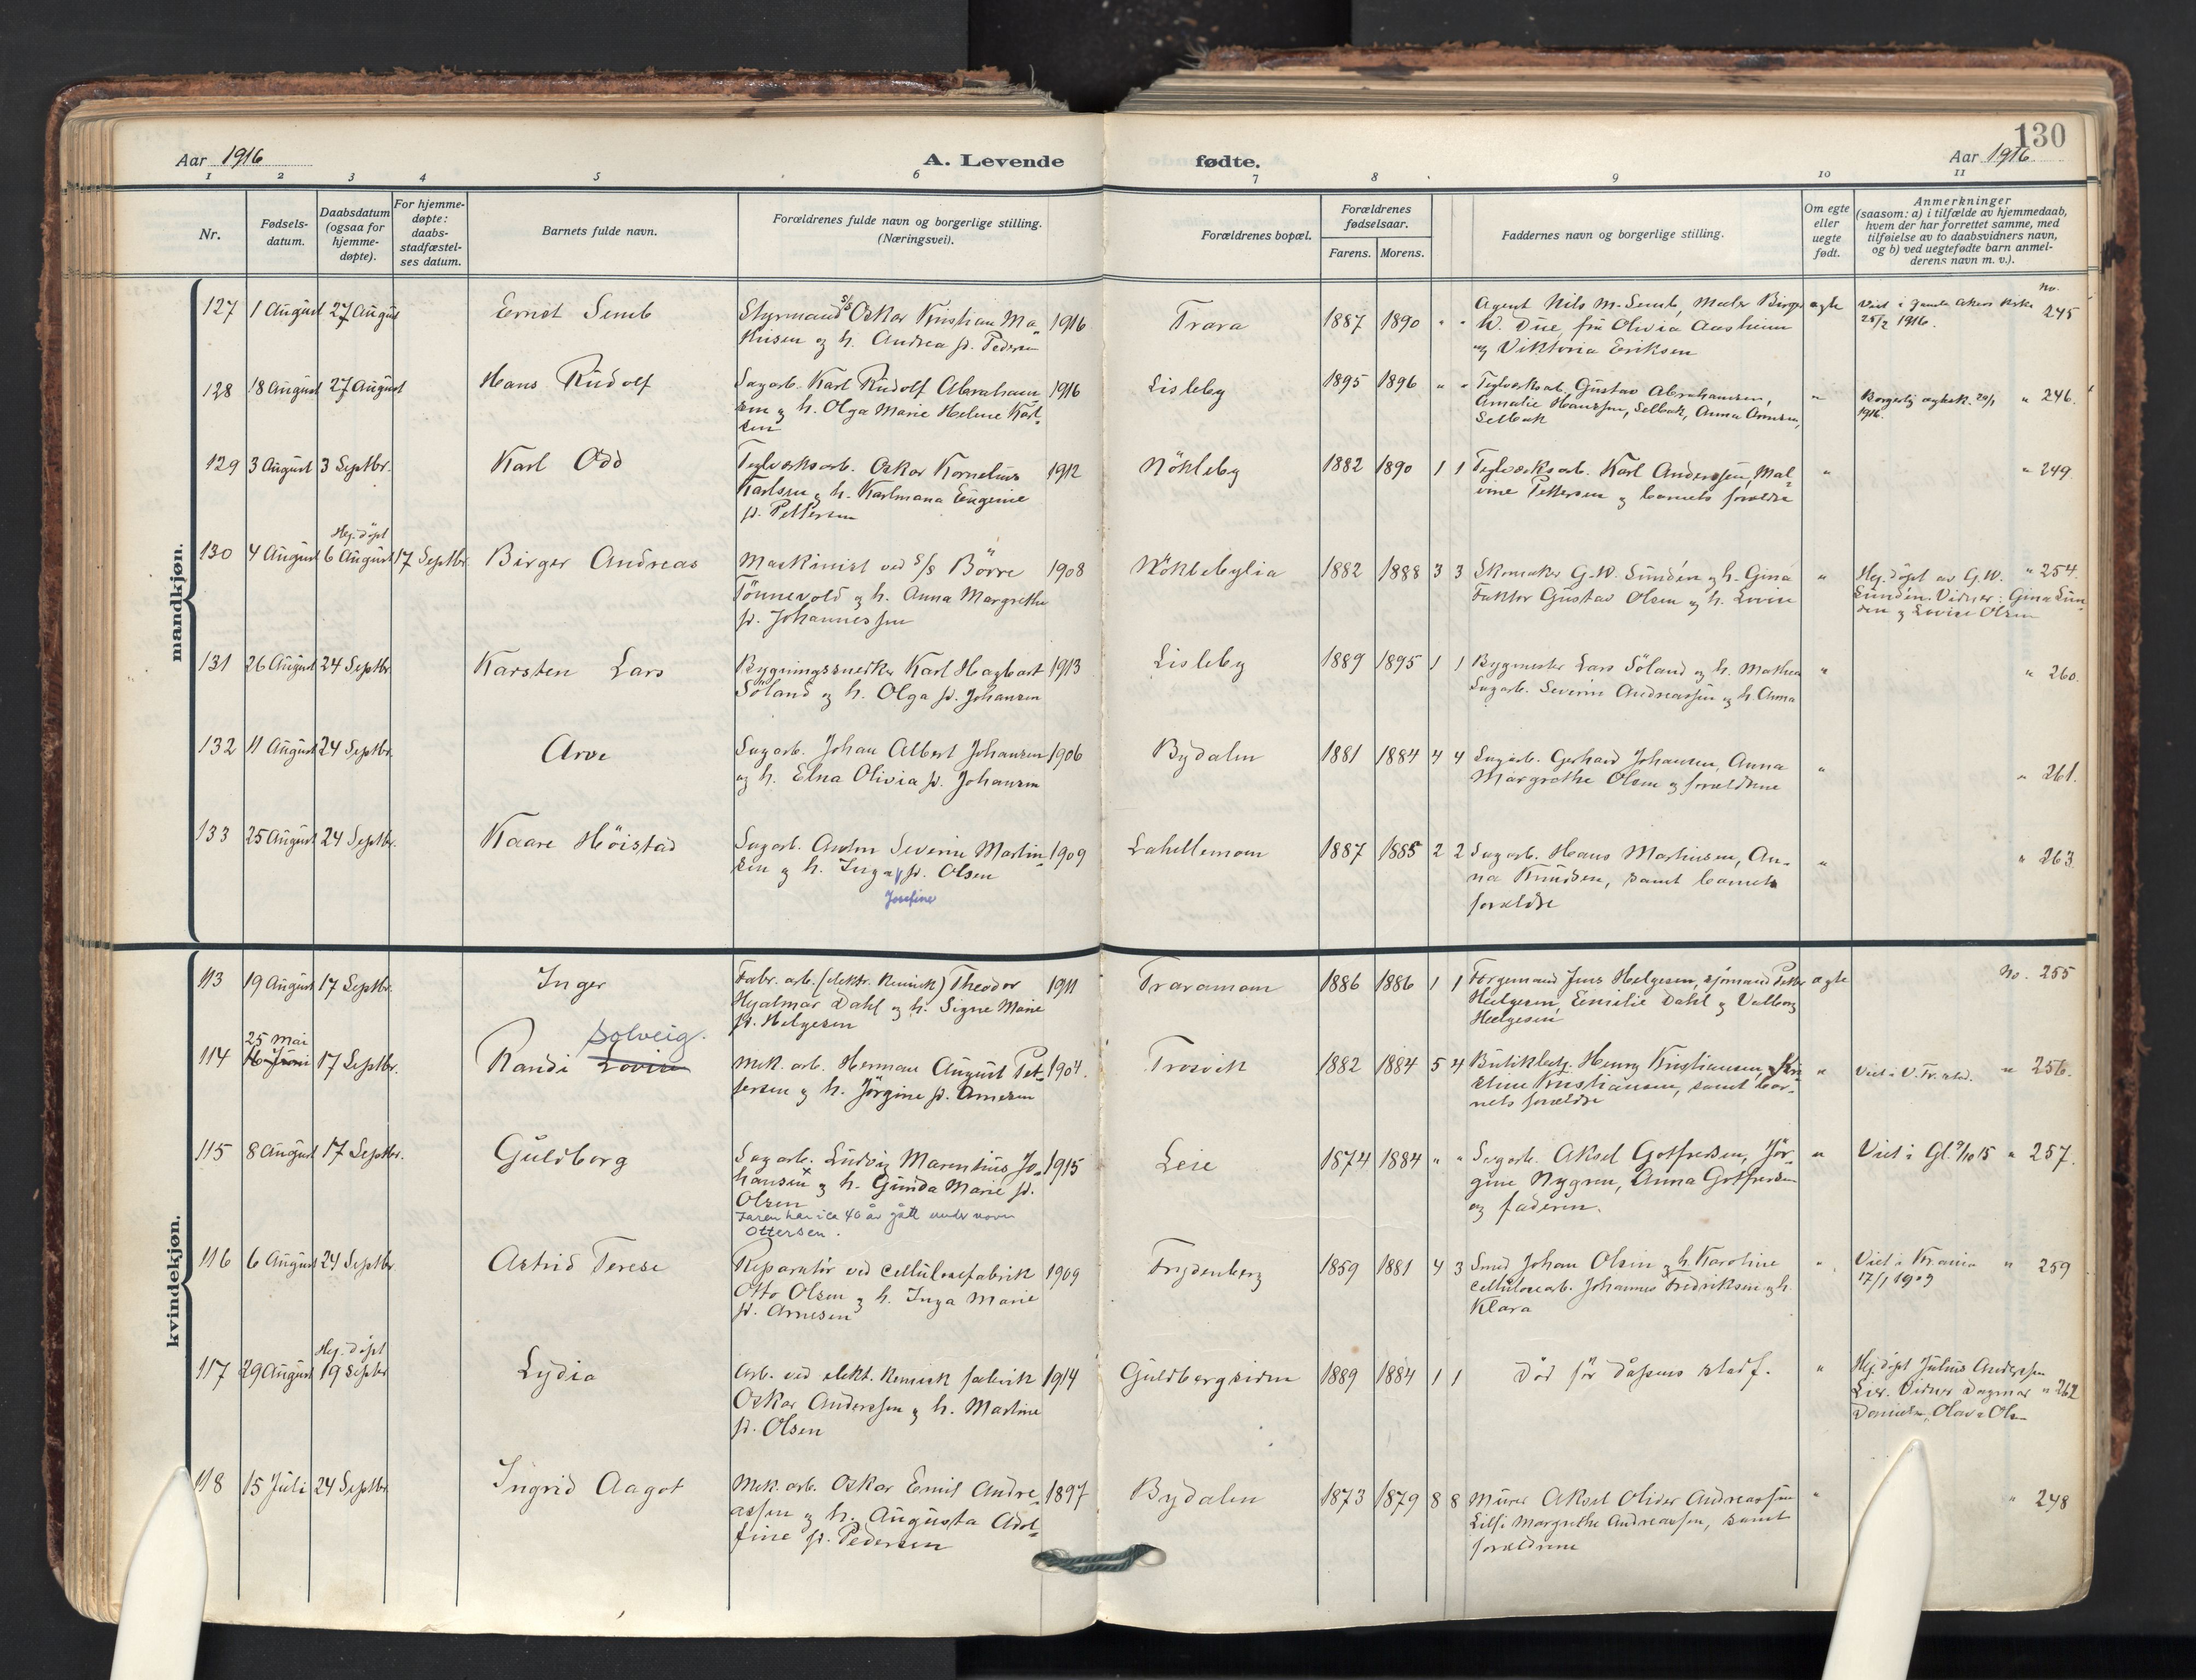 130
Aar 1916
A. Levende
fødte.
Aar 1916
1 2 3 4 5 6 7 8 9 10 11
Nr.
Fødsels-
datum.
Daabsdatum
(ogsaa for
hjemme-
døpte).
For hjemme-
døpte:
daabs-
stadfæstel-
ses datum.
Barnets fulde navn.
Forældrenes fulde navn og borgerlige stilling.
(Næringsvei).
Forældrenes bopæl.
Forældrenes
fødselsaar.
Farens. Morens.
Faddernes navn og borgerlige stilling.
Om egte
eller
uegte
født.
Anmerkninger
(saasom: a) i tilfælde av hjemmedaab,
hvem der har forrettet samme, med
tilføielse av to daabsvidners navn,
og b) ved uegtefødte barn anmel-
derens navn m. v.).
mandkjøn.
127 1 August 27 August Ernst Semb
Styrmand S/S Oskar Kristian Ma- 1916
thisen og h. Andrea f. Pedersen
Trara 1887 1890 " "
Agent Nils M. Semb, Maler Birger
W. Due, frk Olivia Aasheim
og Viktoria Eriksen
egte
Viet i Gamle Akers Kirke
25/2 1916.
no. 245
128 18 August 27 August Hans Rudolf
Sagarb. Karl Rudolf Abraham- 1916
sen og h. Olga Marie Helene Karl-
sen
Lisleby 1895 1896 " "
Teglverksarb. Gustav Abrahamsen,
Amalie Hanssen, Selbak, Anna Arnesen,
Selbak
"
Borgerlig egtesk. 29/1
1916.
" 246.
129 3 August 3 Septbr. Karl Odd
Teglverksarb. Oskar Kornelius 1912
Karlsen og h. Karlmana Eugenie
f. Pettersen
Nökleby 1882 1890 1 1
Teglverksarb. Karl Anderssen, Mal-
vine Pettersen og barnets forældre
" " 249
Hej. döpt
130 4 August 6 August 17 Septbr. Birger Andreas
Maskinist ved S/S Börre 1908
Tönnevold og h. Anna Margrethe
f. Johannessen
Nöklebylia 1882 1888 3 3
Skomaker G. W. Lundén og h. Gina
Faktor Gustav Olsen og h. Lovise
"
Hej. döpt av G. W. " 254.
Lundén. Vidner: Gina Lun-
den og Lovise Olsen
131 26 August 24 Septbr. Karsten Lars
Bygningssnedker Karl Hagbart 1913
Söland og h. Olga f. Johansen
Lisleby 1889 1895 1 1
Bygmester Lars Söland og h. Mathea
Sagarb. Severin Andreassen og h. Anna
" " 260.
132 11 August 24 Septbr. Arve
Sagarb. Johan Albert Johansen 1906
og h. Elna Olivia f. Johansen
Bydalen 1881 1884 4 4
Sagarb. Gerhard Johansen, Anna
Margrethe Olsen og forældrene
" " 261.
133 25 August 24 Septbr. Kaare Höistad
Sagarb. Anton Severin Martin- 1909
sen og h. Inga f. Olsen
Josefine
Lahellemoen 1887 1885 2 2
Sagarb. Hans Martinsen, An-
na Knudsen, samt barnets
forældre
" " 263
kvindekjøn.
113 19 August 17 Septbr. Inger
Fabr. arb. (elektr. kemisk) Theodor 1911
Hjalmar Dahl og h. Signe Marie
f. Helgesen
Traramoen 1886 1886 1 1
Færgemand Jens Helgesen, sjömand Peter
Helgesen, Emilie Dahl og Valborg
Helgesen
egte no. 255
25 Mai
Solveig.
114 16 Juni 17 Septbr. Randi Lovise
Mek. arb. Herman August Pet- 1904.
tersen og h. Jörgine f. Arnesen
Trosvik 1882 1884 5 4
Butikbest. Henry Kristiansen, Kri-
stine Kristiansen, samt bar-
nets forældre
" Viet i V. Fr.stad. " 256.
115 8 August 17 Septbr. Guldborg
Sagarb. Ludvig Marentius Jo- 1915
hansen x og h. Gunda Marie f.
Olsen
Faren har i ca 40 år gått under navn
Ottersen.
Leie 1874 1884 " "
Sagarb. Aksel Gotfredsen, Jör-
gine Nygren, Anna Gotfredsen
og faderen.
" Viet i Gl. 9/10 15 " 257.
116 6 August 24 Septbr. Astrid Terese
Reparatör ved cellulosefabrik 1909
Otto Olsen og h. Inga Marie
f. Arnesen
Frydenberg 1859 1881 4 3
Smed Johan Olsen og h. Karoline
Cellulosearb. Johannes Fredriksen og h.
Klara
" Viet i Kr.ania " 259
17/1 1909
Hej. döpt
117 29 August 19 Septbr Lydia
Arb. ved elekt. kemisk fabrik 1914
Oskar Anderssen og h. Martine
f. Olsen
Guldbergsiden 1889 1884 1 1
Död för dåpens stadf.
"
Hej döpt Julius Anderssen
Lier. Vidner Dagmar " 262
Danielsen, Olava Olsen
118 15 Juli 24 Septbr. Ingrid Aagot
Mek. arb. Oskar Emil Andre- 1897
assen og h. Augusta Adol-
fine f. Pedersen
Bydalen 1873 1879 8 8
Murer Aksel Oliver Andreassen
Lilli Margrethe Andreassen, samt
forældrene
" " 248